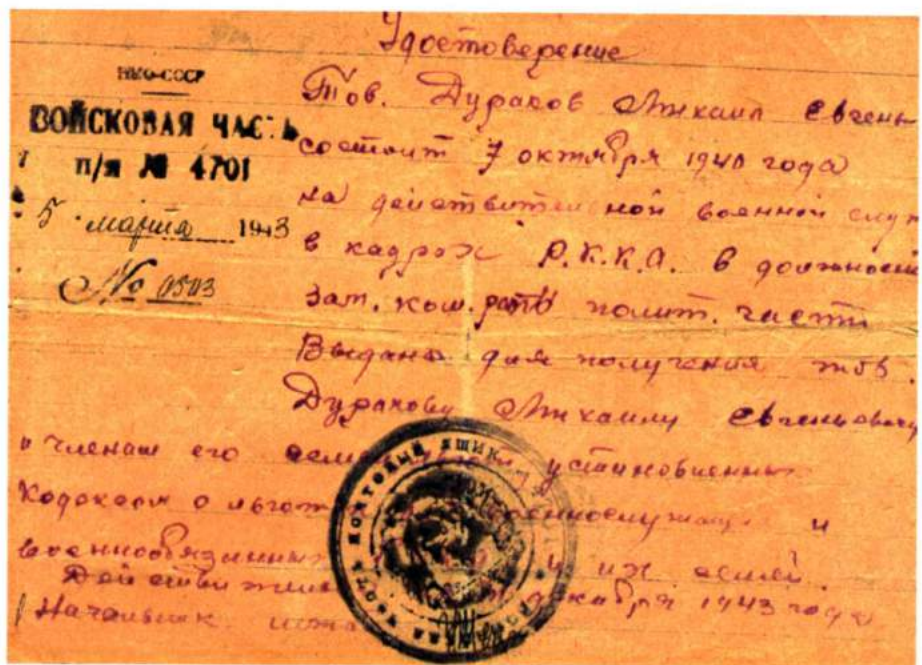 Удостоверение
НКО-СССР
ВОЙСКОВАЯ ЧАСТЬ
п/я № 4701
5 марта 1943
№ 0503
Тов. Дураков Михаил Евгень
состоит 7 октября 1940 года
на действительной военной служ
в кадрах Р.К.К.А. в должности
зам. ком. роты полит. части
Выдано для получения тов.
Дуракову Михаилу Евгеньевичу
и членам его установленных
Кодексом о льготах военнослужащ и
военнообязанных и их семей.
Действительно декабря 1943 года
Начальник
ПОЧТОВЫЙ ЯЩИК